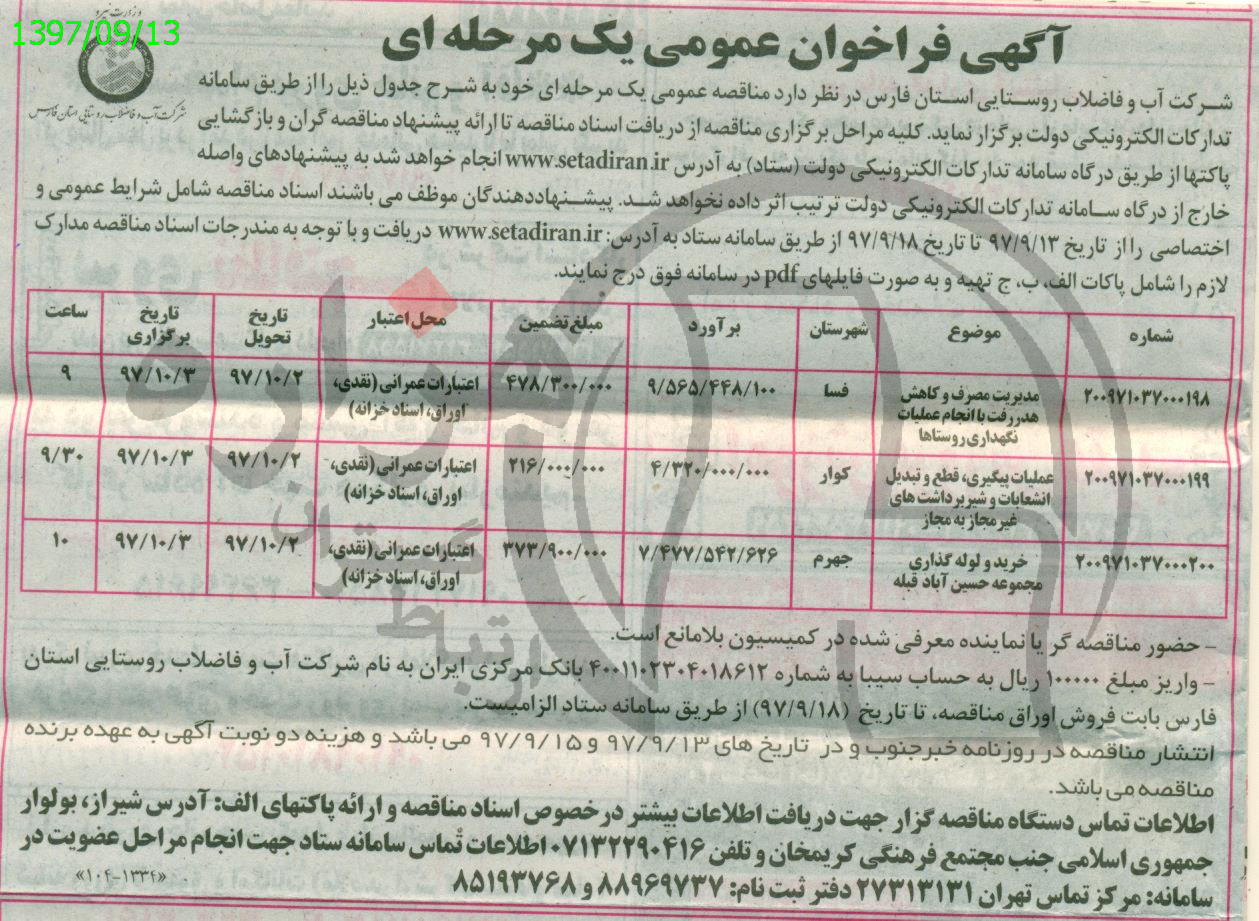 1397/09/13
وزارت نیرو
شرکت آب و فاضلاب روستایی استان فارس
آگهی فراخوان عمومی یک مرحله ای
شرکت آب و فاضلاب روستایی استان فارس در نظر دارد مناقصه عمومی یک مرحله ای خود به شرح جدول ذیل را از طریق سامانه
تدارکات الکترونیکی دولت برگزار نماید. کلیه مراحل برگزاری مناقصه از دریافت اسناد مناقصه تا ارائه پیشنهاد مناقصه گران و بازگشایی
پاکتها از طریق درگاه سامانه تدارکات الکترونیکی دولت (ستاد) به آدرس www.setadiran.ir انجام خواهد شد به پیشنهادهای واصله
خارج از درگاه سامانه تدارکات الکترونیکی دولت ترتیب اثر داده نخواهد شد. پیشنهاددهندگان موظف می باشند اسناد مناقصه شامل شرایط عمومی و
اختصاصی را از تاریخ ۹۷/۹/۱۳ تا تاریخ ۹۷/۹/۱۸ از طریق سامانه ستاد به آدرس: www.setadiran.ir دریافت و با توجه به مندرجات اسناد مناقصه مدارک
لازم را شامل پاکات الف، ب، ج تهیه و به صورت فایلهای pdf در سامانه فوق درج نمایند.
شماره موضوع شهرستان برآورد مبلغ تضمین محل اعتبار تاریخ تحویل تاریخ برگزاری ساعت
۲۰۰۹۷۱۰۳۷۰۰۰۱۹۸ مدیریت مصرف و کاهش فسا ۹/۵۶۵/۴۴۸/۱۰۰ ۴۷۸/۳۰۰/۰۰۰ اعتبارات عمرانی (نقدی، ۹۷/۱۰/۲ ۹۷/۱۰/۳ ۹
هدررفت با انجام عملیات اوراق، اسناد خزانه)
نگهداری روستاها
۲۰۰۹۷۱۰۳۷۰۰۰۱۹۹ عملیات پیگیری، قطع و تبدیل کوار ۴/۳۲۰/۰۰۰/۰۰۰ ۲۱۶/۰۰۰/۰۰۰ اعتبارات عمرانی (نقدی، ۹۷/۱۰/۲ ۹۷/۱۰/۳ ۹/۳۰
انشعابات و شیربرداشت های اوراق، اسناد خزانه)
غیر مجاز به مجاز
۲۰۰۹۷۱۰۳۷۰۰۰۲۰۰ خرید و لوله گذاری جهرم ۷/۴۷۷/۵۴۲/۶۲۶ ۳۷۳/۹۰۰/۰۰۰ اعتبارات عمرانی (نقدی، ۹۷/۱۰/۲ ۹۷/۱۰/۳ ۱۰
مجموعه حسین آباد قبله اوراق، اسناد خزانه)
– حضور مناقصه گر یا نماینده معرفی شده در کمیسیون بلامانع است.
– واریز مبلغ ۱۰۰۰۰۰ ریال به حساب سیبا به شماره ۴۰۰۱۱۰۲۳۰۴۰۱۸۶۱۲ بانک مرکزی ایران به نام شرکت آب و فاضلاب روستایی استان
فارس بابت فروش اوراق مناقصه، تا تاریخ (۹۷/۹/۱۸) از طریق سامانه ستاد الزامیست.
انتشار مناقصه در روزنامه خبرجنوب و در تاریخ های ۹۷/۹/۱۳ و ۹۷/۹/۱۵ می باشد و هزینه دو نوبت آگهی به عهده برنده
مناقصه می باشد.
اطلاعات تماس دستگاه مناقصه گزار جهت دریافت اطلاعات بیشتر در خصوص اسناد مناقصه و ارائه پاکتهای الف: آدرس شیراز، بولوار
جمهوری اسلامی جنب مجتمع فرهنگی کریمخان و تلفن ۰۷۱۳۲۲۹۰۴۱۶ اطلاعات تماس سامانه ستاد جهت انجام مراحل عضویت در
سامانه: مرکز تماس تهران ۲۷۳۱۳۱۳۱ دفتر ثبت نام: ۸۸۹۶۹۷۳۷ و ۸۵۱۹۳۷۶۸
«۱۰۴-۱۳۳۴»
هزاره
ارتباط گستران